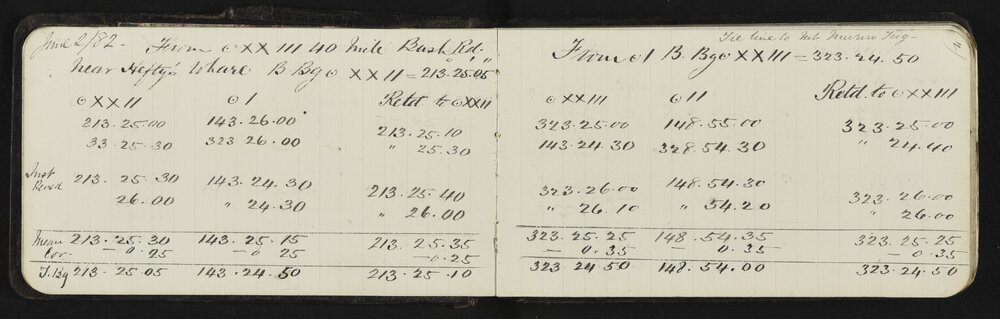 June 2/82. From ⊙ XXIII 40 Mile Bush Rd,
near Hefty's Whare B. Bg ⊙ XXII = 213.25.05
⊙ XXII ⊙ I Retd to ⊙ XXII
213.25.00 143.26.00 213.25.10
33.25.30 323 26.00 " 25.30
Inst
Revsd 213.25.30 143.24.30 213.25.40
26.00 " 24.30 " 26.00
Mean 213.25.30 143.25.15 213.25.35
Cor. — 0.25 — 0 25 — 0.25
T. Bg 213.25.05 143.24.50 213.25.10
Tie line to Mt Munro Trig-
From ⊙ I B. Bg ⊙ XXIII = 323.24.50
⊙ XXIII ⊙ II Retd. to ⊙ XXIII
323.25.00 148.55.00 323.25.00
143.24.30 328.54.30 " 24.40
323.26.00 148.54.30 323.26.00
" 26.10 " 54.20 " 26.00
323.25.25 148.54.35 323.25.25
— 0.35 — 0.35 — 0.35
323 24 50 148.54.00 323.24.50